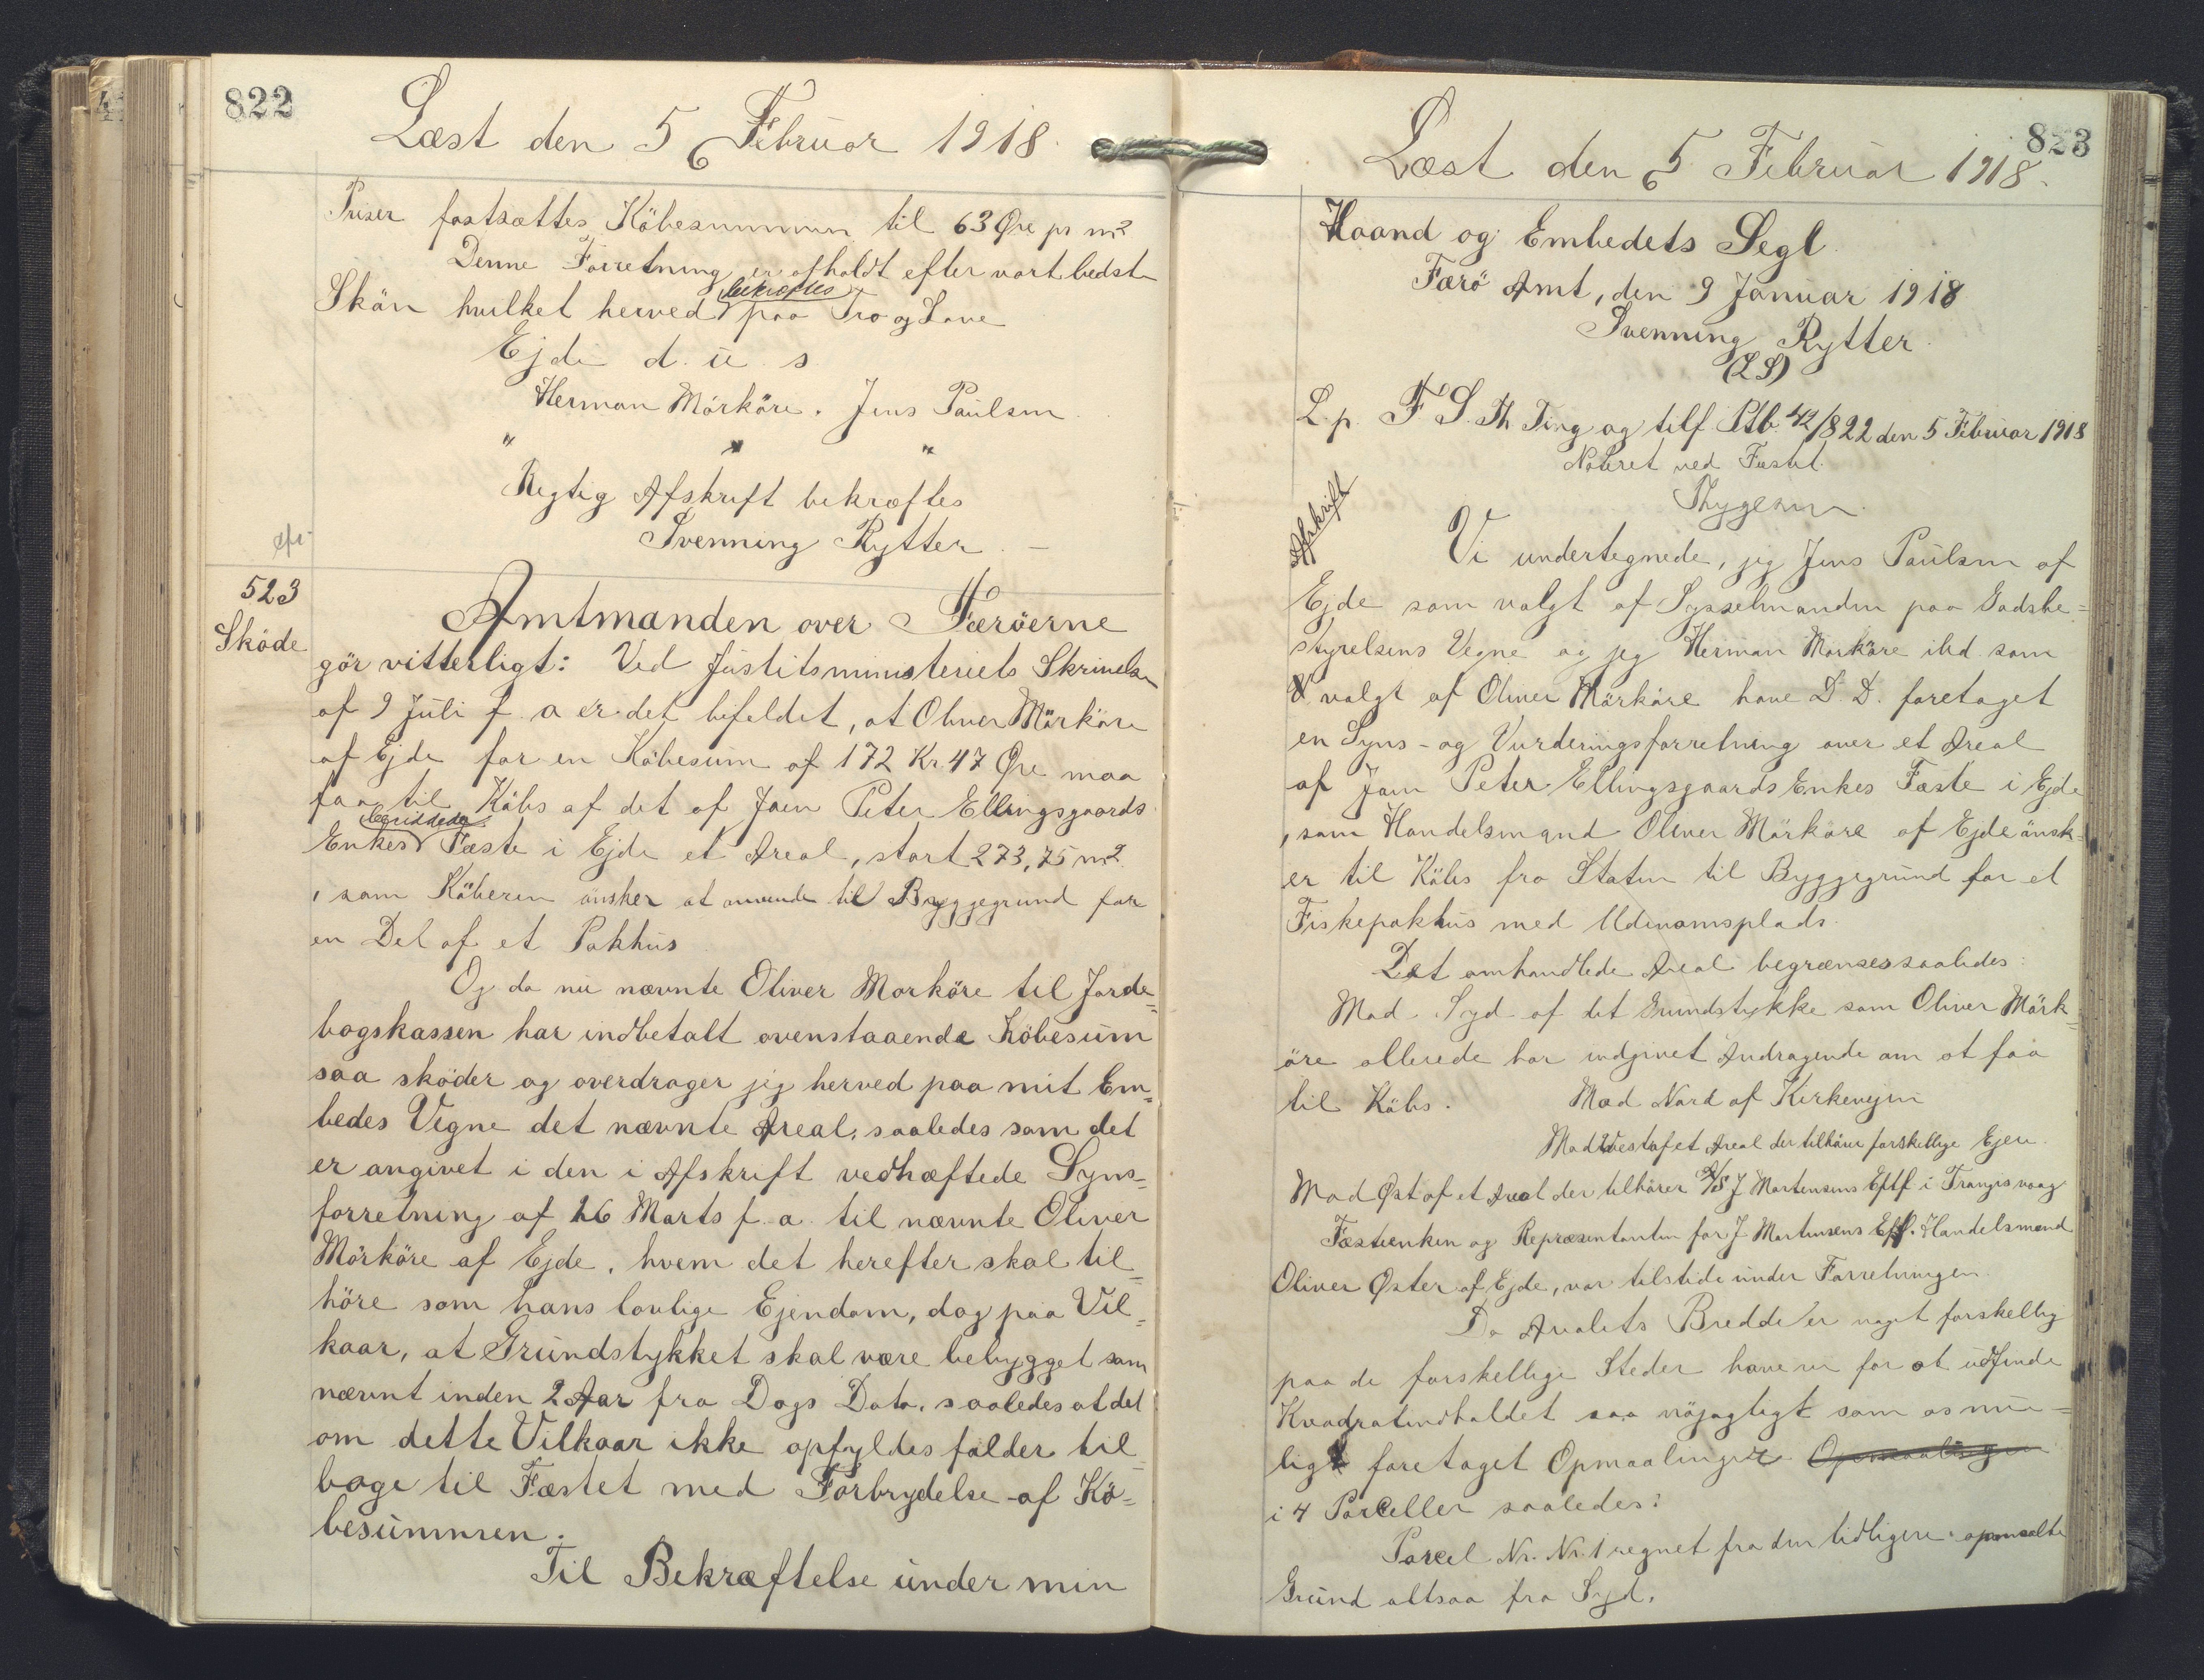 822
Læst den 5 Februar 1918.
Priser fastsættes Köbesummen til 63 Øre pr m2
Denne Forretning er afholdt efter vort bedste
bekræftes
Skön hvilket herved paa Tro og Love
Ejde d. u. s
Herman Mörköre. Jens Paulsen
" " "
Rigtig Afskrift bekræftes
Svenning Rytter.
523
Sköde
Amtmanden over Færöerne
gör vitterligt: Ved Justitsministeriets Skrivelse
af 9 Juli f. a er det bifaldet, at Oliver Mörköre
af Ejde for en Köbesum af 172 Kr. 47 Øre maa
faa til Köbs af det af Joen Peter Ellingsgaards
Enkes Fæste i Ejde et Areal, stort 273,75 m2
, som Köberen önsker at anvende til Byggegrund for
en Del af et Pakhus
Og da nu nævnte Oliver Morköre til Jorde=
bogskassen har indbetalt ovenstaaende Köbesum
saa sköder og overdrager jeg herved paa mit Em=
bedes Vegne det nævnte Areal, saaledes som det
er angivet i den i Afskrift vedhæftede Syns=
forretning af 26 Marts f. a. til nævnte Oliver
Mörköre af Ejde, hvem det herefter skal til=
höre som hans lovlige Ejendom, dog paa Vil=
kaar, at Grundstykket skal være bebygget som
nævnt inden 2 Aar fra Dags Dato, saaledes at det
om dette Vilkaar ikke opfyldes falder til=
bage til Fæstet med Forbrydelse af Kö=
besummen.
Til Bekræftelse under min
823
Læst den 5 Februar 1918.
Haand og Embedets Segl
Færö Amt, den 9 Januar 1918
Svenning Rytter
(L S)
L. p. F. S. Th Ting og tilf. Ptb. 42/822 den 5 Februar 1918
Noteret ved Fæstet.
Thygesen
Afskrift
Vi undertegnede, jeg Jens Paulsen af
Ejde som valgt af Sysselmanden paa Godsbe=
styrelsens Vegne og jeg Herman Morköre ibd. som
valgt af Oliver Mörköre have D. D. foretaget
en Syns- og Vurderingsforretning over et Areal
af Joen Peter Ellingsgaards Enkes Fæste i Ejde
, som Handelsmand Oliver Mörköre af Ejde önsk=
er til Köbs fra Staten til Byggegrund for et
Fiskepakhus med Udenomsplads.
Det omhandlede Areal begrænses saaledes:
Mod Syd af det Grundstykke som Oliver Mörk=
öre allerede har indgivet Andragende om at faa
til Köbs. Mod Nord af Kirkevejen
Mod Vest af et Areal der tilhörer forskellige Ejere.
Mod Øst af et Areal der tilhörer A/S J Mortensens Eftf i Trangisvaag
Fæsteenken og Repræsentanten for J Mortensens Eftf. Handelsmand
Oliver Øster af Ejde, var tilstede under Forretningen.
Da Arealets Bredde er noget forskellig
paa de forskellige Steder have vi for at udfinde
Kvadratindholdet saa nöjagtigt som os mu=
ligt foretaget Opmaalinger Opmaalingen
i 4 Parceller saaledes:
Parcel Nr. Nr. 1 regnet fra den tidligere opmaalte
Grund altsaa fra Syd.